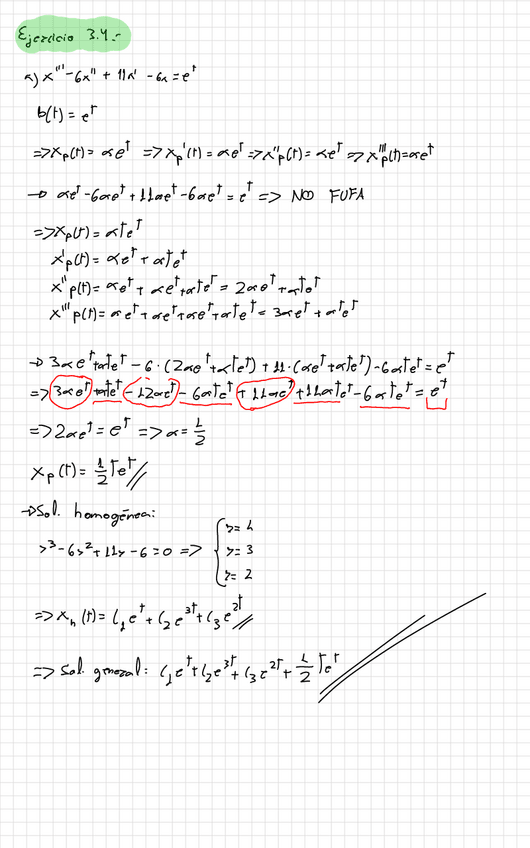 Ejercicio 3.4.-
a) x''' - 6x'' + 11x' - 6x = e^t
b(t) = e^t
=> x_p(t) = αe^t => x_p'(t) = αe^t => x''_p(t) = αe^t => x'''_p(t) = αe^t
→ αe^t - 6αe^t + 11αe^t - 6αe^t = e^t => NOO FUFA
=> x_p(t) = αte^t
x'_p(t) = αe^t + αte^t
x''_p(t) = αe^t + αe^t + αte^t = 2αe^t + αte^t
x'''_p(t) = αe^t + αe^t + αe^t + αte^t = 3αe^t + αte^t
→ 3αe^t + αte^t - 6·(2αe^t + αte^t) + 11·(αe^t + αte^t) - 6αte^t = e^t
=> 3αe^t + αte^t - 12αe^t - 6αte^t + 11αe^t + 11αte^t - 6αte^t = e^t
=> 2αe^t = e^t => α = 1/2
x_p(t) = 1/2 te^t //
→ Sol. homogénea:
r^3 - 6r^2 + 11r - 6 = 0 => { r = 1
r = 3
r = 2
=> x_h(t) = C_1 e^t + C_2 e^3t + C_3 e^2t //
=> Sol. general: C_1 e^t + C_2 e^3t + C_3 e^2t + 1/2 te^t //